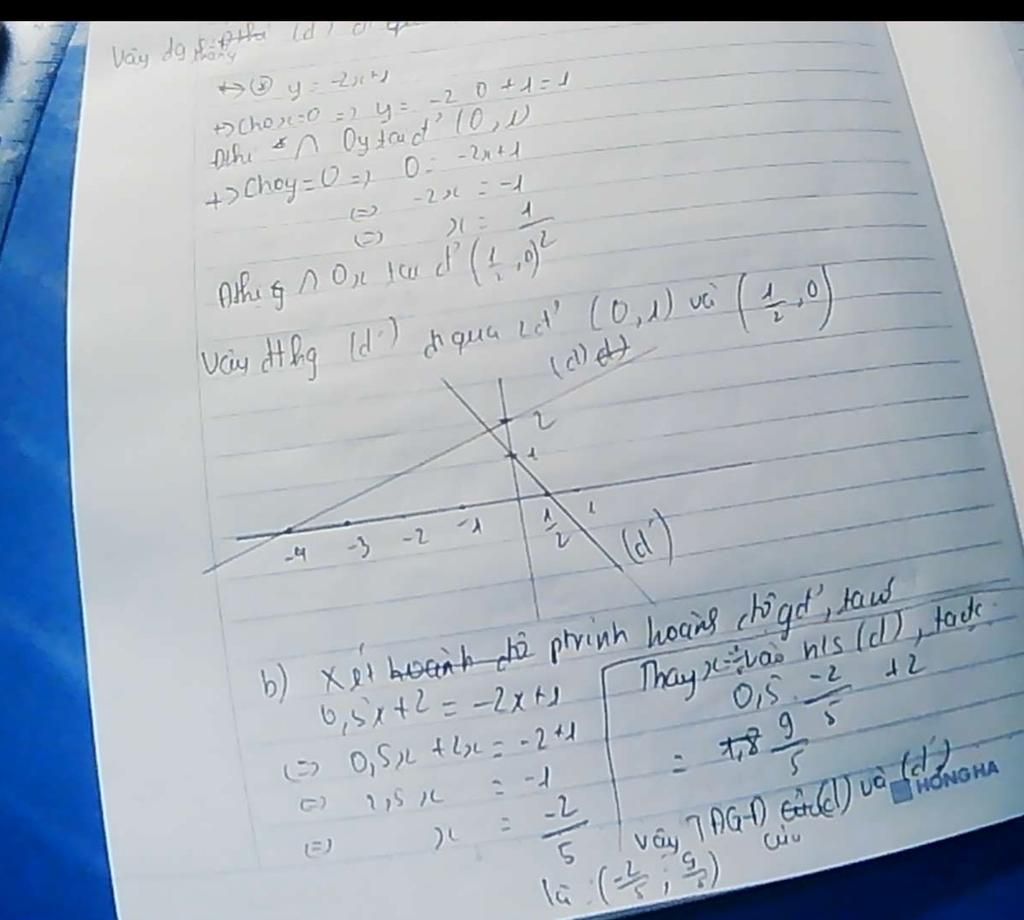 Vậy đg thẳng (d)
+> y = -2x+1
+> Cho x=0 => y = -2 0 +1 = 1
Đthị ∩ Oy tại đ' (0,1)
+> Cho y=0 => 0 = -2x+1
(=) -2x = -1
(=) x = 1/2
Đthị ∩ Ox tại đ' (1/2, 0)
Vậy đthg (d') đi qua 2 đ' (0,1) và (1/2, 0)
(d)
2
1
-4 -3 -2 -1 1/2 1
(d')
b) Xét ptrình hoành độ gđ', ta có
0,5x+2 = -2x+1
(=) 0,5x + 2x = -2+1
(=) 2,5x = -1
(=) x = -2/5
Thay x= vào h/s (d), tađc
0,5 . -2/5 +2
= 9/5
Vậy TĐGĐ của (d) và (d')
là : (-2/5 ; 9/5)
HỒNG HÀ